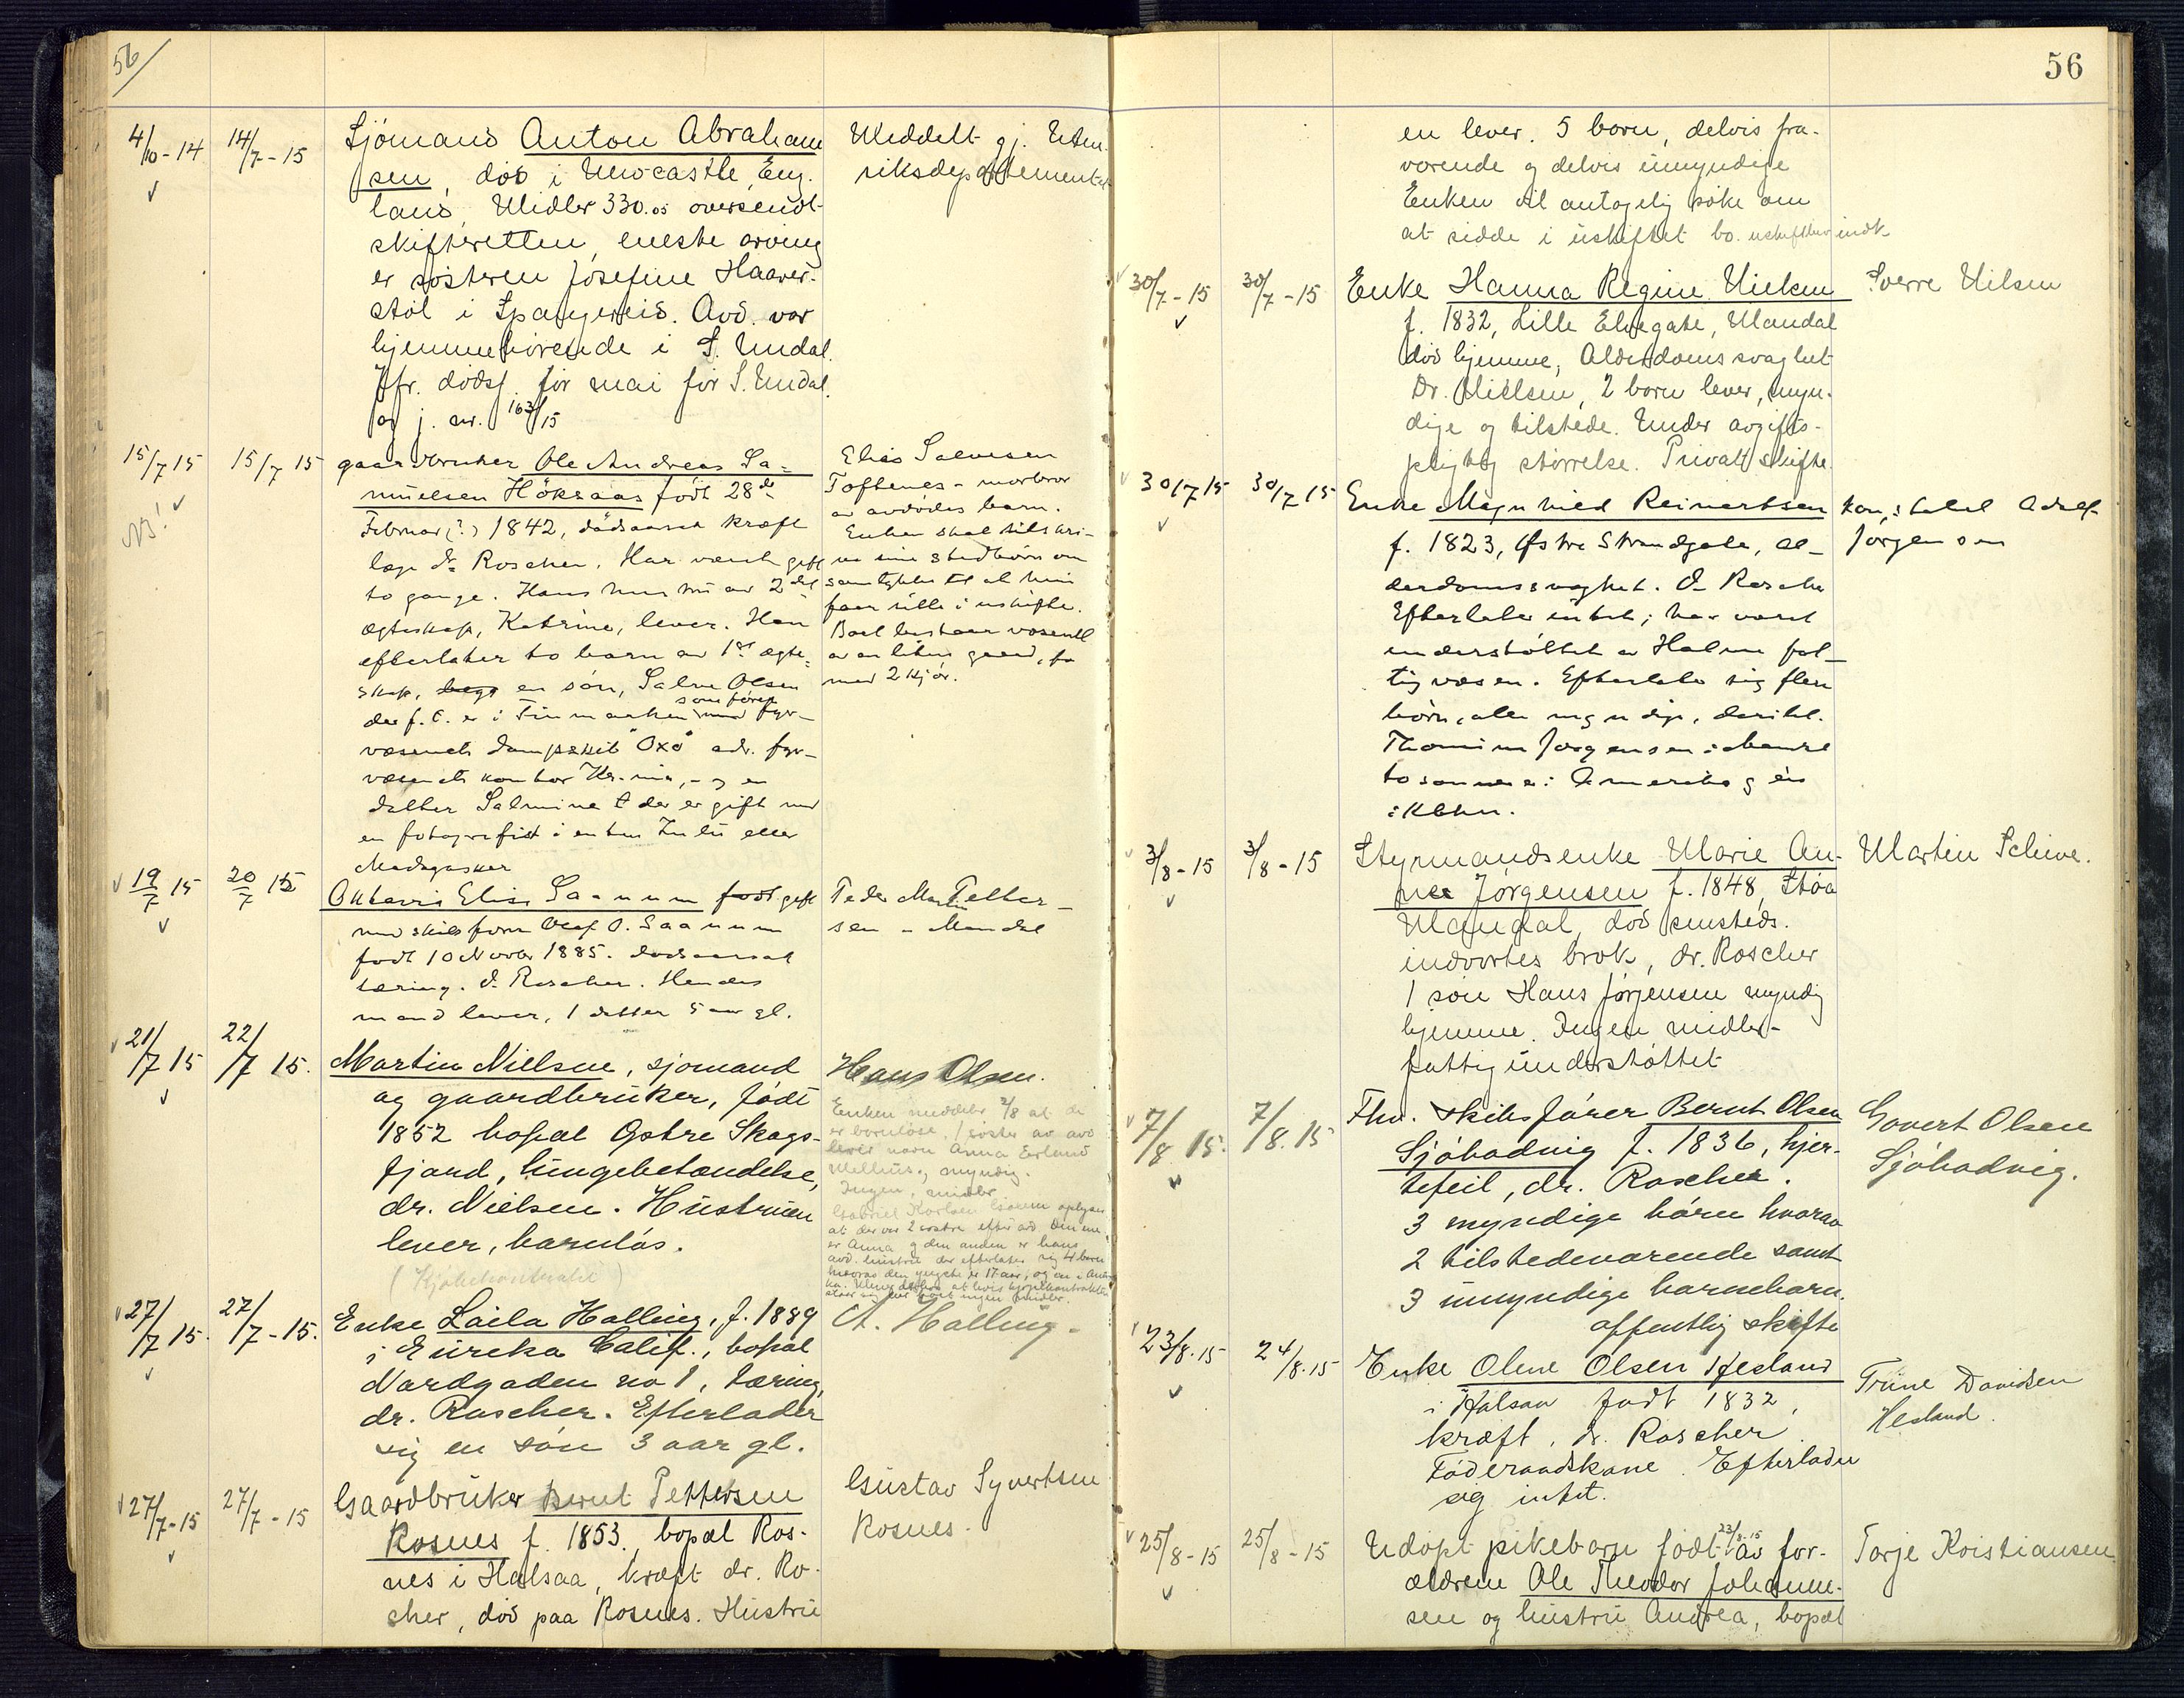 56
4/10-14 14/7-15 Sjömand Anton Abraham
sen, död i Newcastle, Eng.
land, Midler 330.05 oversendt
skifteretten, eneste arving
er søsteren Josefine Haaver-
stöl i Spangereid. Avd. var
hjemmehörende i S. Undal.
Jfr. dödsf. for mai for S. Undal
og j. nr. 163/15
Meddelt gj. Uten-
riksdepartementet
15/7 15 15/7 15 gaardbruker Ole Andreas Sa-
NB!
muelsen Höksaas födt 28de
Februar (?) 1842, dödsaarsak kræft
læge dr Roscher. Har været gift
to gange. Hans hustru av 2det
ægteskap, Katrine, lever. Han
efterlater to barn av 1ste ægte-
skap, en sön, Salve Olsen
der f.t. er i Finmarken som förer med fyr-
væsenets dampskib "Oxö" adr. fyr-
væsenets kontor Kr.nia, - og en
datter Salmine der er gift med
en fotografist i enten Zulu eller
Madagasker
Elias Salvesen
Toftenes - morbror
av avdödes barn.
Enken skal tilskri-
ve sine stedbörn om
samtykke til at hun
faar sitte i uskifte.
Boet bestaar væsentl
av en liten gaard, fö
med 2 kjör.
19/7 15 20/7 15 Oktavie Elise Saanum födt gift
med skibsförer Olaf O. Saanum
födt 10 Novbr 1885. dödsaarsak
tæring. dr Roscher. Hendes
mand lever, 1 datter 5 aar gl.
Peder Martin Petter-
sen - Mandal
21/7 15 22/7 15. Martin Nielsen, sjömand
og gaardbruker, födt
1852 bopæl Östre Skogs-
fjord, lungebetændelse,
dr. Nielsen. Hustruen
lever, barnlös.
(Kjöpekontrakt)
Hans Olsen.
Enken meddeler 2/8 at de
er barnlöse. 1 söster av avd
lever navn Anna
myndig.
Ingen midler
Gabriel Karlsen oplyser
at der var 2 söstre efter avd. Den ene
er Anna og den anden er hans
avd. hustru der efterlater sig 4 barn
hvorav den yngste er 17 aar, og en i Amerika.
27/7 15. 27/7-15. Enke Laila Halling, f. 1889
i Eureka Calif., bopæl
Nordgaden no 1, tæring,
dr. Roscher. Efterlader
sig en sön 3 aar gl.
A. Halling.
27/7-15 27/7-15 Gaardbruker Bernt Pettersen
Rosnes f. 1853. bopæl Ros-
nes i Halsaa, kræft dr. Ro-
scher, död paa Rosnes. Hustru
Gustav Syvertsen
Rosnes.
56
en lever. 5 born, delvis fra-
værende og delvis umyndige
Enken vil antagelig söke om
at sidde i uskiftet bo.
30/7-15 30/7-15 Enke Hanna Regine Nielsen
f. 1832, Lille Elvegate, Mandal
död hjemme, Alderdomssvaghet
Dr. Nielsen, 2 born lever, myn-
dige og tilstede. Under avgifts-
pligtig störrelse. Privat skifte.
Sverre Nilsen
30/7 15 30/7 15 Enke Magnhild Reinertsen
f. 1823, Østre Strandgate, al-
derdomssvaghet. Dr Roscher
Efterlater intet; har været
understöttet av Halse fat-
tigvæsen. Efterlater sig flere
börn, alle myndige, deribl.
Thomine Jörgensen i Mandal
to sönner i Amerika og én
i Kbhn.
Konstabel Adolf
Jörgensen
3/8-15 3/8-15 Styrmandsenke Marie An-
ne Jörgensen f. 1848, Stöa
Mandal, död sinsteds.
indvortes brok, dr. Roscher
1 sön Hans Jörgensen myndig
hjemme. Ingen midler-
fattigunderstöttet
Martin Schive.
7/8 15. 7/8.15 Fhv. skibsförer Bernt Olsen
Sjöbodvig f. 1836, hjer-
tefeil, dr. Roscher.
3 myndige börn hvorav
2 tilstedeværende samt
3 umyndige barnebarn.
offentlig skifte
Govert Olsen
Sjöbodvig.
23/8.15 24/8.15 Enke Olene Olsen Hesland
i Halsaa födt 1832,
kræft, dr. Roscher.
Föderaadskone. Efterlader
sig intet.
Trine Davidsen
Hesland.
25/8-15 25/8-15 Udöpt pikebarn födt 23/8-15 av for-
ældrene Ole Theodor Johanne-
sen og hustru Andrea, bopæl
Torje Kristiansen